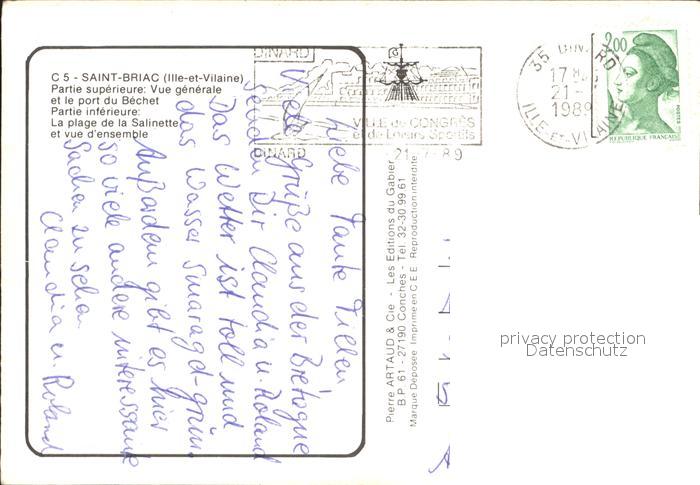 C 5 - SAINT-BRIAC (Ille-et-Vilaine)
Partie supérieure: Vue générale
et le port du Béchet
Partie inférieure:
La plage de la Salinette
et vue d'ensemble
DINARD
VILLE de CONGRÈS
et de Loisirs Sportifs
DINARD
21-7-89
35 DINARD
17
21-
1989
ILLE-ET-VILAINE
2,00
POSTES
REPUBLIQUE FRANÇAISE
Liebe Tante
Viele Grüße aus der Bretagne
senden Dir Claudia u. Roland
Das Wetter ist toll und
das Wasser smaragd-grün.
Außerdem gibt es hier
so viele andere interessante
Sachen zu sehen.
Claudia u. Roland
Pierre ARTAUD & Cie - Les Editions du Gabier
B.P. 61 - 27190 Conches - Tél. 32-30 99 61
Marque Déposée Imprimé en C.E.E. Reproduction interdite
privacy protection
Datenschutz